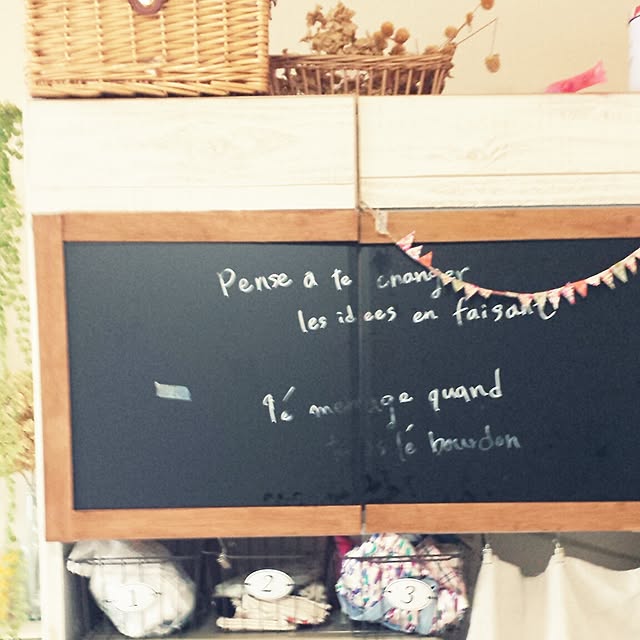 Pense à te changer
les idees en faisant
lé menage quand
t as lé bourdon
1
2
3